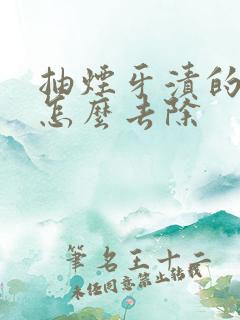 抽煙牙漬的
怎麼去除
筆名王十二
未經同意禁止轉載